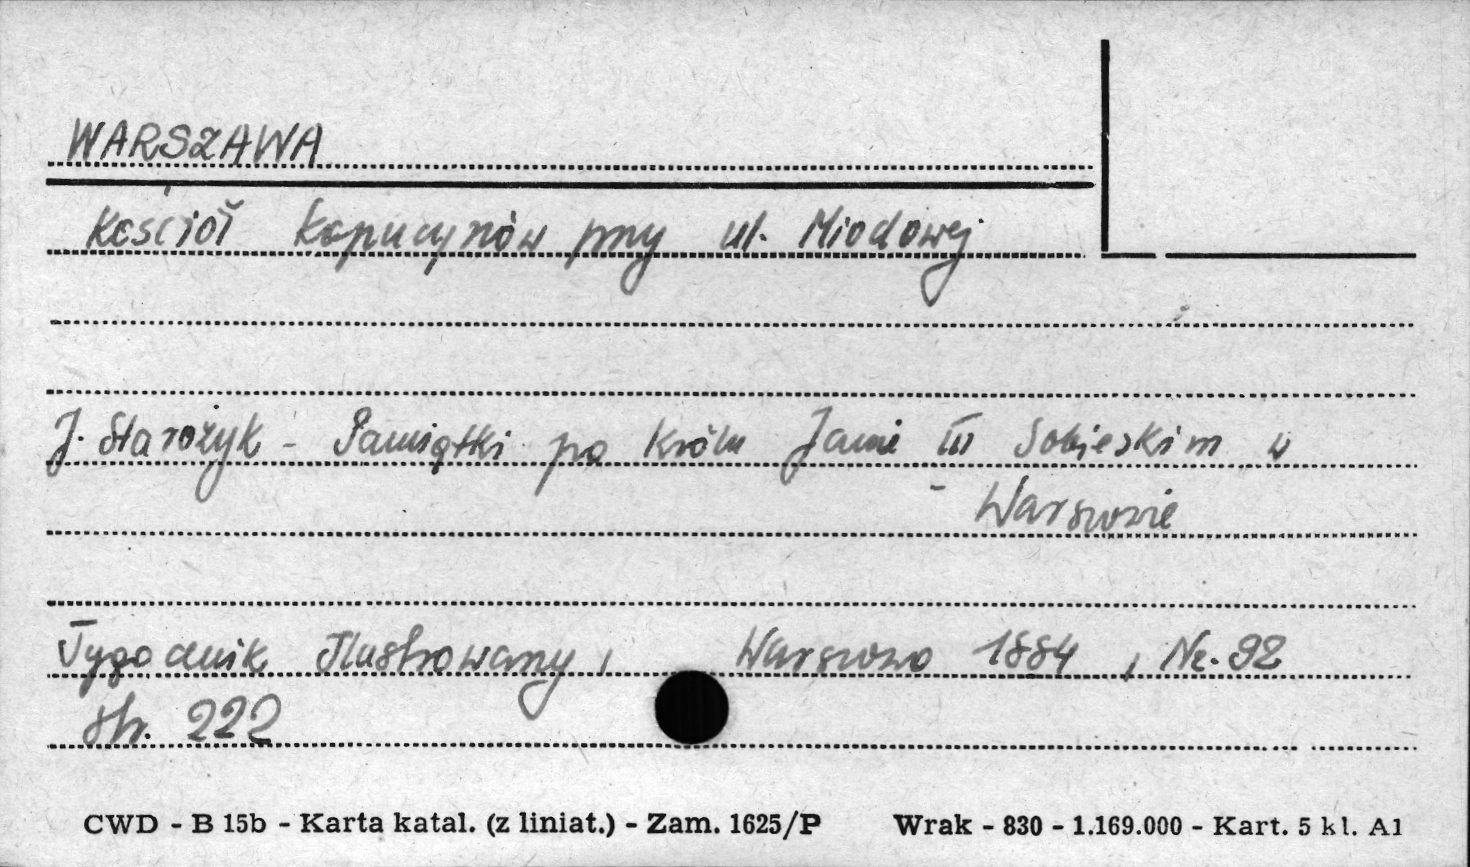 WARSZAWA
Kościół Kapucynów przy ul. Miodowej
J. Starożyk - Pamiątki po Królu Janie III Sobieskim w
- Warszawie
Tygodnik Ilustrowany, Warszawa 1884, Nr. 92
str. 222
CWD - B 15b - Karta katal. (z liniat.) - Zam. 1625/P Wrak - 830 - 1.169.000 - Kart. 5 kl. A1